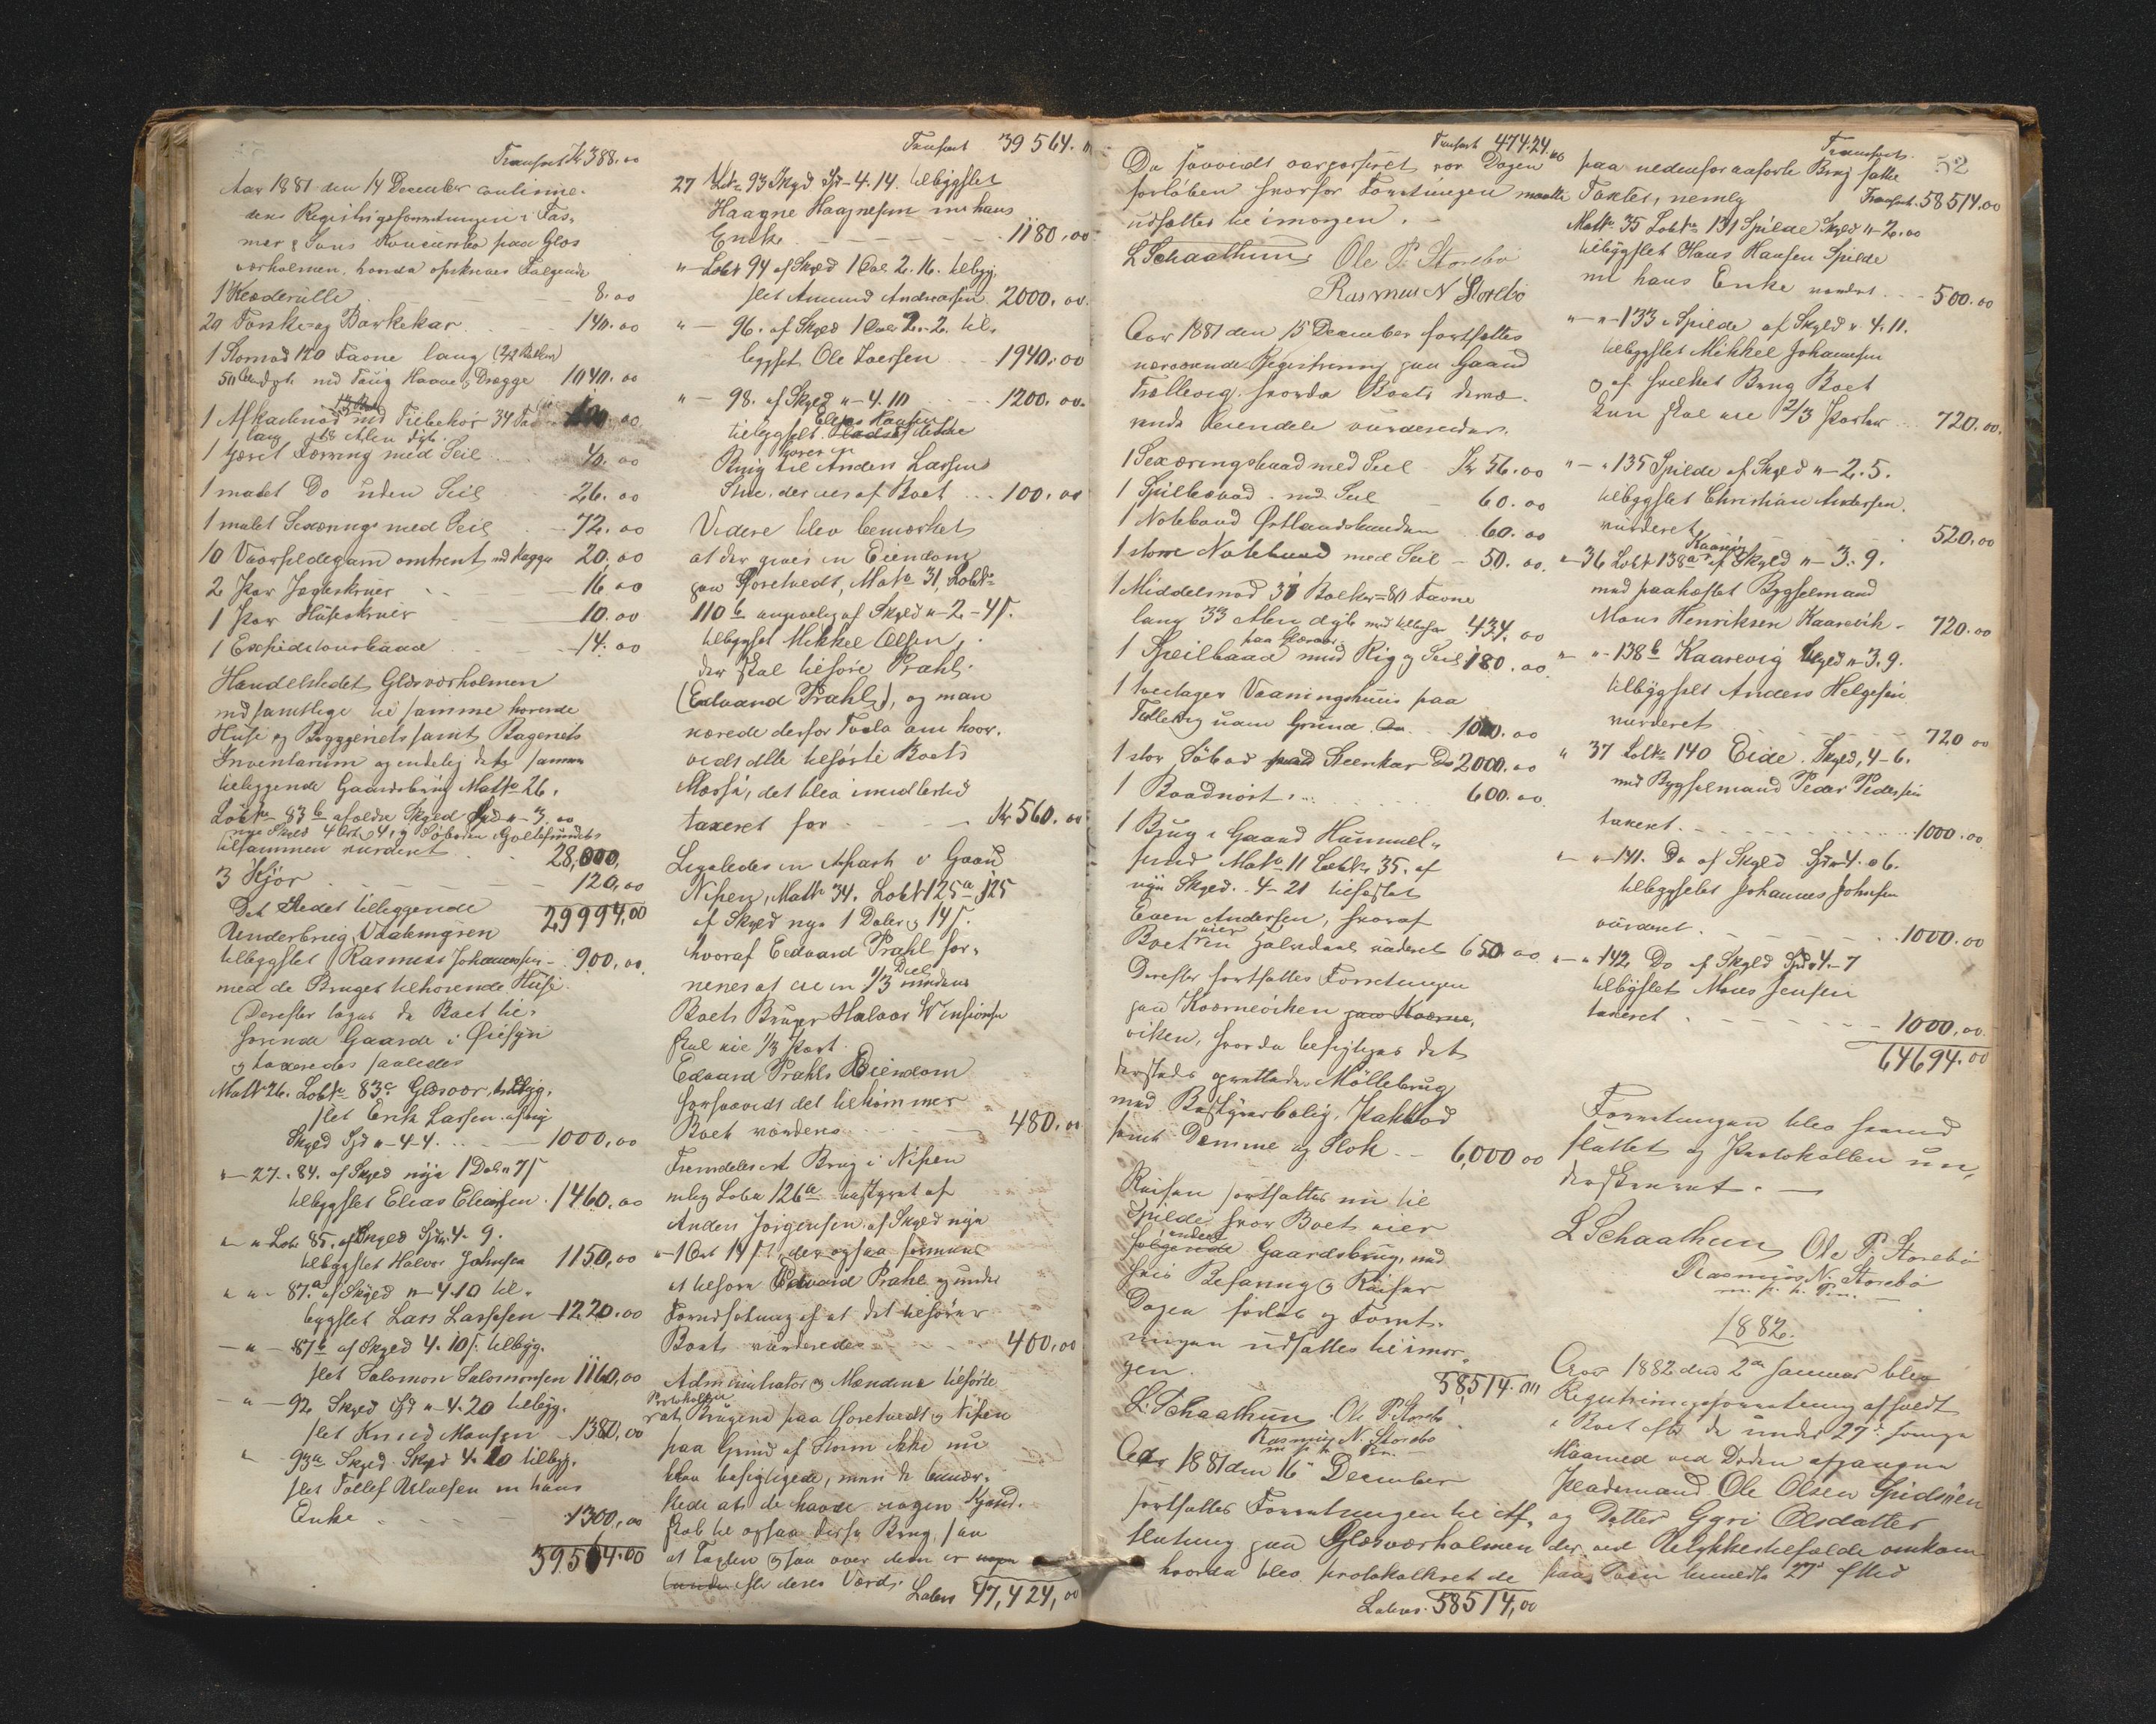 Transport Kr 388.00
Aar 1881 den 14 December continue-
redes Registrigsforretningen i Fas-
mer & Søns Koncursbo paa Glæs
værholmen, hvorda opskreves Følgende
1 Klæderulle 8.00
20 Torske- og Barkekar 140.00
1 Stornod 120 Favne lang
50 Alen dyb med Toug Haave & Drægge 1040.00
1 Afkastnod med Tilbehør 34 Fa
lang 18 Alen dyb.
1 Færing med Seil 40.00
1 malet Do uden Seil 26.00
1 malet Sexærings med Seil 72.00
10 Vaarsildegarn omtrent med Kagge 20.00
2 Par Jagteskruer 16.00
1 Par Huseskruer 10.00
1 Expeditionsbaad 14.00
Handelstedet Glæsværholmen
med samtlige til samme hørende
Huse og Byggeriets samt Bageriets
Inventarium og endelig det samme
tilliggende Gaardsbrug Matr 26.
Lobn 83 b af olds Skyld Spd "-3.00
nye Skyld 4 Ort 4 s, og Søboden i Goltesundet
tilsammen vurderet 28,000,
3 Kjør 120,00
29994.00
Det Stedet tilliggende
Underbrug, Vaalemyren
tilbygslet Rasmus Johannessen 900,00
med de Bruget tilhørende Huse.
Derefter toges de Boet til-
hørende Gaarde i Øiesyn
og taxeredes saaledes
Matr 26. Lobn 83 c Glæsvær, tilbyg.
slet Erik Larsen af ny
Skyld Spd "-4-4 1000,00
"-27. 84. af Skyld nye 1 Dal " 7 s
tilbygslet Elias Eliassen 1460.00
" " Lobn 85. af Skyld Spd. 4. 9.
tilbygslet Halvor Johnsen 1150,00
" " 87 a af Skyld "-4.10 til-
bygslet Lars Larssen 1220.00
- " - 87 b af Skyld 4. 10 s. tilbyg.
slet Salomon Salomonsen 1160,00
- " - 92 Skyld Spd "-4.20 tilbyg.
slet Knud Monsen 1380,00
" 93 a Skyld Skyld 4.20 tilbyg.
slet Tollef Nilsen nu hans
Enke 1300,00
39564.00
Transport 39564.
27 Lobn 93 Skyld Spd-4.14. tilbygslet
Haagne Haagnesen nu hans
Enke 1180,00
"-Lobn 94 af Skyld 1 Dal 2. 16. tilbyg.
slet Amund Andreassen 2000.00
" - 96. af Skyld 1 Daler 2.-2. til-
bygslet Ole Larsen 1940.00
" - 98. af Skyld "-4.10 1200.00
tilbygslet Elias Hansen dette
Brug til Anders Larsens
Stue, der eies af Boet 100.00
Videre blev bemærket
at der gives en Eiendom
paa Toretvedt, Matr 31, Lobn
110 b angivelig af Skyld "-2-4 s.
tilbygslet Mikkel Olsen,
der skal tilhøre Prahl.
(Edvard Prahl), og man
nærede derfor Tvivl om hvor-
vidt dette tilhørte Boets
Massa, det blev imidlertid
taxeret for Kr 560.00
Ligeledes en Part i Gaard
Nipen, Matr 34. Lobn 125 a & 125
af Skyld nye 1 Daler, 14 s.
hvoraf Eedvard Prahl for-
menes at eie en 1/3 Deel medens
Boets Bruger Halvor
skal eie 1/3 Part.
Edvard Prahls Eiendom
forsaavidt det tilkommer
Boet vurderes 480.00
Fremdeles et Brug i Nipen
nemlig Lobn 126 a bebygget af
Anders Jørgensen af Skyld nye
"-1 Ort 14 s, der ogsaa formenes
at tilhøre Edvard Prahl og under
Forudsætning af at det tilhører
Boet vurderedes 400,00
Administrator & Mændene tilførte
Protokollen
at Brugene paa Toretvedt & Nipen
paa Grund af Storm ikke nu
blev besigtigede, men de bemær-
kede at de havde nogen Kjend-
skab til ogsaa disse Brug, saa
at Taxten ogsaa over dem er
efter deres Værd.
Lateris 47,424,00
Transport 47424.00
Da saavidt var passeret var Dagen
forløben hvorfor Forretningen maatte
udsættes til imorgen.
L Schaathun Ole P. Storebø
Rasmus N Storebø
Aar 1881 den 15 December fortsattes
nærværende Registrering paa Gaard
Trællevig, hvorda Boets dervæ-
rende Eiendele vurderedes.
1 Sexæringsbaad med Seil Kr 56.00
1 Spilbaad med Seil 60.00
1 Notebaad Østlandsbunden 60.00
1 større Notebaad med Seil - 50.00.
1 Middelsnod 30 Bolker=80 Favne
lang 33 Alen dyb med tilbehør 434.00
paa Glæsvær
1 Speilbaad med Rig og Seil 180.00
1 toetages Vaaningshuus paa
Trællevig uden Grund 1000.00
1 stor Søbod paa Steenkar Do 2000.00
1 Baadnøst 600.00
1 Brug i Gaard Hummel-
sund Matr 11 Lobn 35. af
nye Skyld. 4-21 tilfæstet
Even Andersen, hvoraf
Boet eier en halvdeel vurderet 650.00
Derefter fortsattes Forretningen
paa Kværneviken paa Kværne-
viken, hvorda besigtiges det
dersteds oprettede Møllebrug
med Bestyrerbolig, Pakbod
samt Damme og Stok - 6,000 00
Reisen fortsattes nu til
Spilde hvor Boet eier
endeel
følgende Gaardsbrug, med
hvis Befaring & Reiser
Dagen forløb og Forret-
ningen udsattes til imor-
gen.
58,514.00
L. Schaathun Ole P. Storebø
Rasmus N. Storebø
m. p. h. Pen.
Aar 1881 den 16 December
fortsattes Forretningen til Af-
slutning paa Glæsværholmen
hvorda blev protokolleret de
Lateris. 58514,00
52
Transports.
paa nedenfor anførte Brug satte
Taxter, nemlig Transport. 58514.00
Matr 35 Lobn 131 Spilde Skyld "-2.00
tilbygslet Hans Hansen Spilde
nu hans Enke vurderet - 500.00
" - " - 133 i Spilde af Skyld " 4. 11.
tilbygslet Mikkel Johannesen
og af hvilket Brug Boet
kun skal eie 2/3 Parter 720.00.
" - " 135 Spilde af Skyld "-2.5.
tilbygslet Christian Andersen.
vurderet 520.00
Kaarevig
"-36 Lobn 138 a af Skyld "-3.9.
med paahæftet Bygselmand
Mons Henriksen Kaarevik - 720.00
" "-138 b Kaarevig Skyld "-3.9.
tilbygslet Anders Helgesen
vurderet 720 00
" 37 Lobn 140 Eide. Skyld, 4-6.
med Bygselmand Peder Pedersen
taxeret 1000.00.
" - "-141. Do af Skyld Spd " 4. 6.
tilbygslet Johannes Johnsen
vurderet 1000.00
" - " 142 Do af Skyld Spd " 4.-7
tilbygslet Mons Jensen
taxeret - 1000.00
64694.00
Forretningen blev herved
sluttet og Protokollen un-
derskrevet.
L Schaathun Ole P. Storebø
Rasmus N. Storebø
m. p. h. Pen.
1882.
Aar 1882 den 2den Januar blev
Registreringsforretning afholdt
i Boet efter de under 27de forrige
Maaned ved Døden afgangne
Pladsmand Ole Olsen Spidsøen
og Datter Gyri Olsdatter
der ved Ulykkestilfælde omkom
paa Søen bemeldte 27de